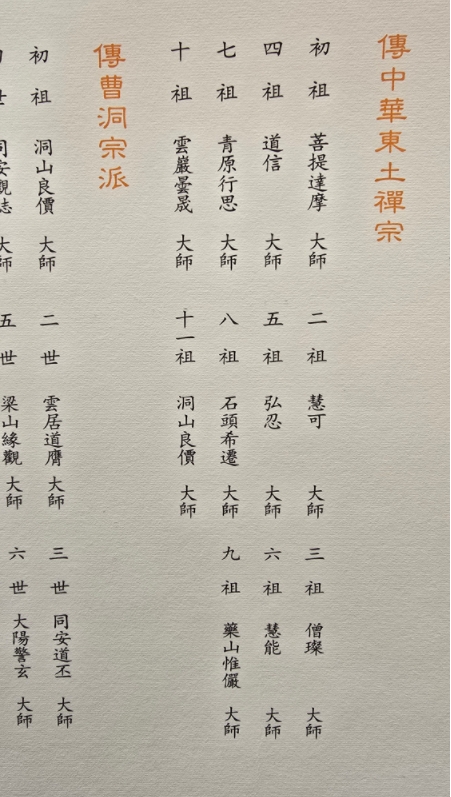 傳中華東土禪宗
初祖 菩提達摩 大師 二祖 慧可 大師 三祖 僧璨 大師
四祖 道信 大師 五祖 弘忍 大師 六祖 慧能 大師
七祖 青原行思 大師 八祖 石頭希遷 大師 九祖 藥山惟儼 大師
十祖 雲巖曇晟 大師 十一祖 洞山良價 大師
傳曹洞宗派
初祖 洞山良價 大師 二世 雲居道膺 大師 三世 同安道丕 大師
世 同安觀志 大師 五世 梁山緣觀 大師 六世 大陽警玄 大師